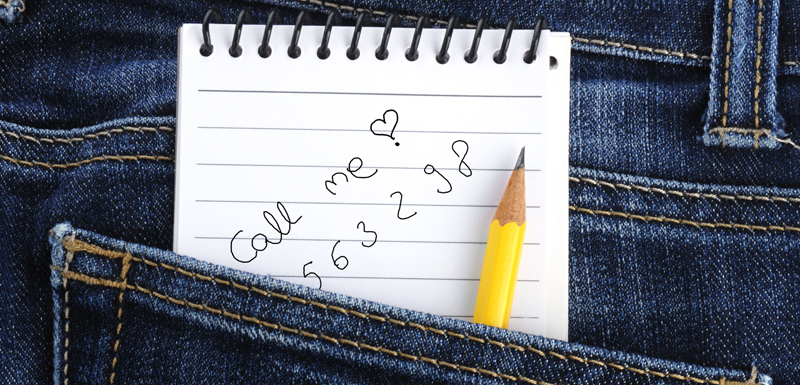 Call me
5 6 3 2 9 8